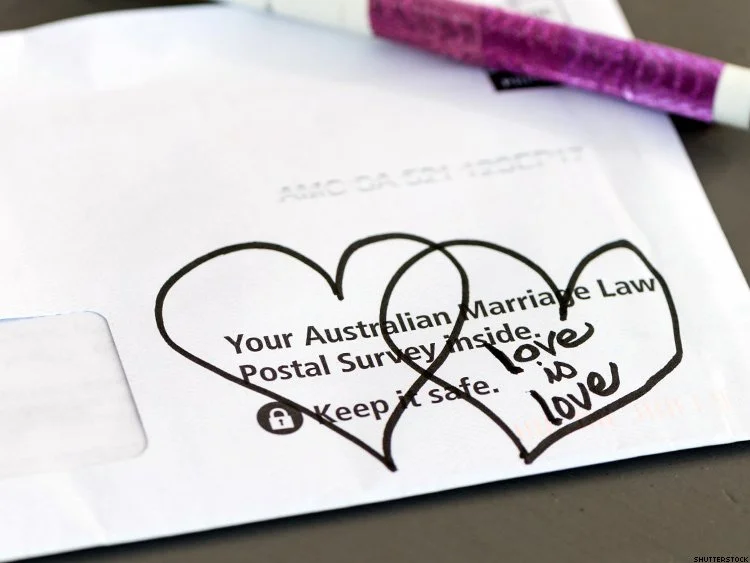 Your Australian Marriage Law
Postal Survey inside.
Keep it safe.
love
is
love
SHUTTERSTOCK